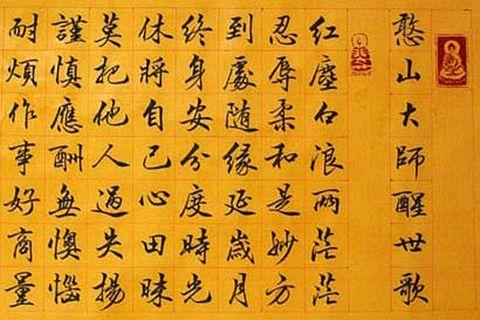 憨山大師醒世歌
紅塵白浪兩茫茫
忍辱柔和是妙方
到處随緣延歲月
終身安分度時光
休將自己心田昧
莫把他人過失揚
謹慎應酬無懊惱
耐煩作事好商量